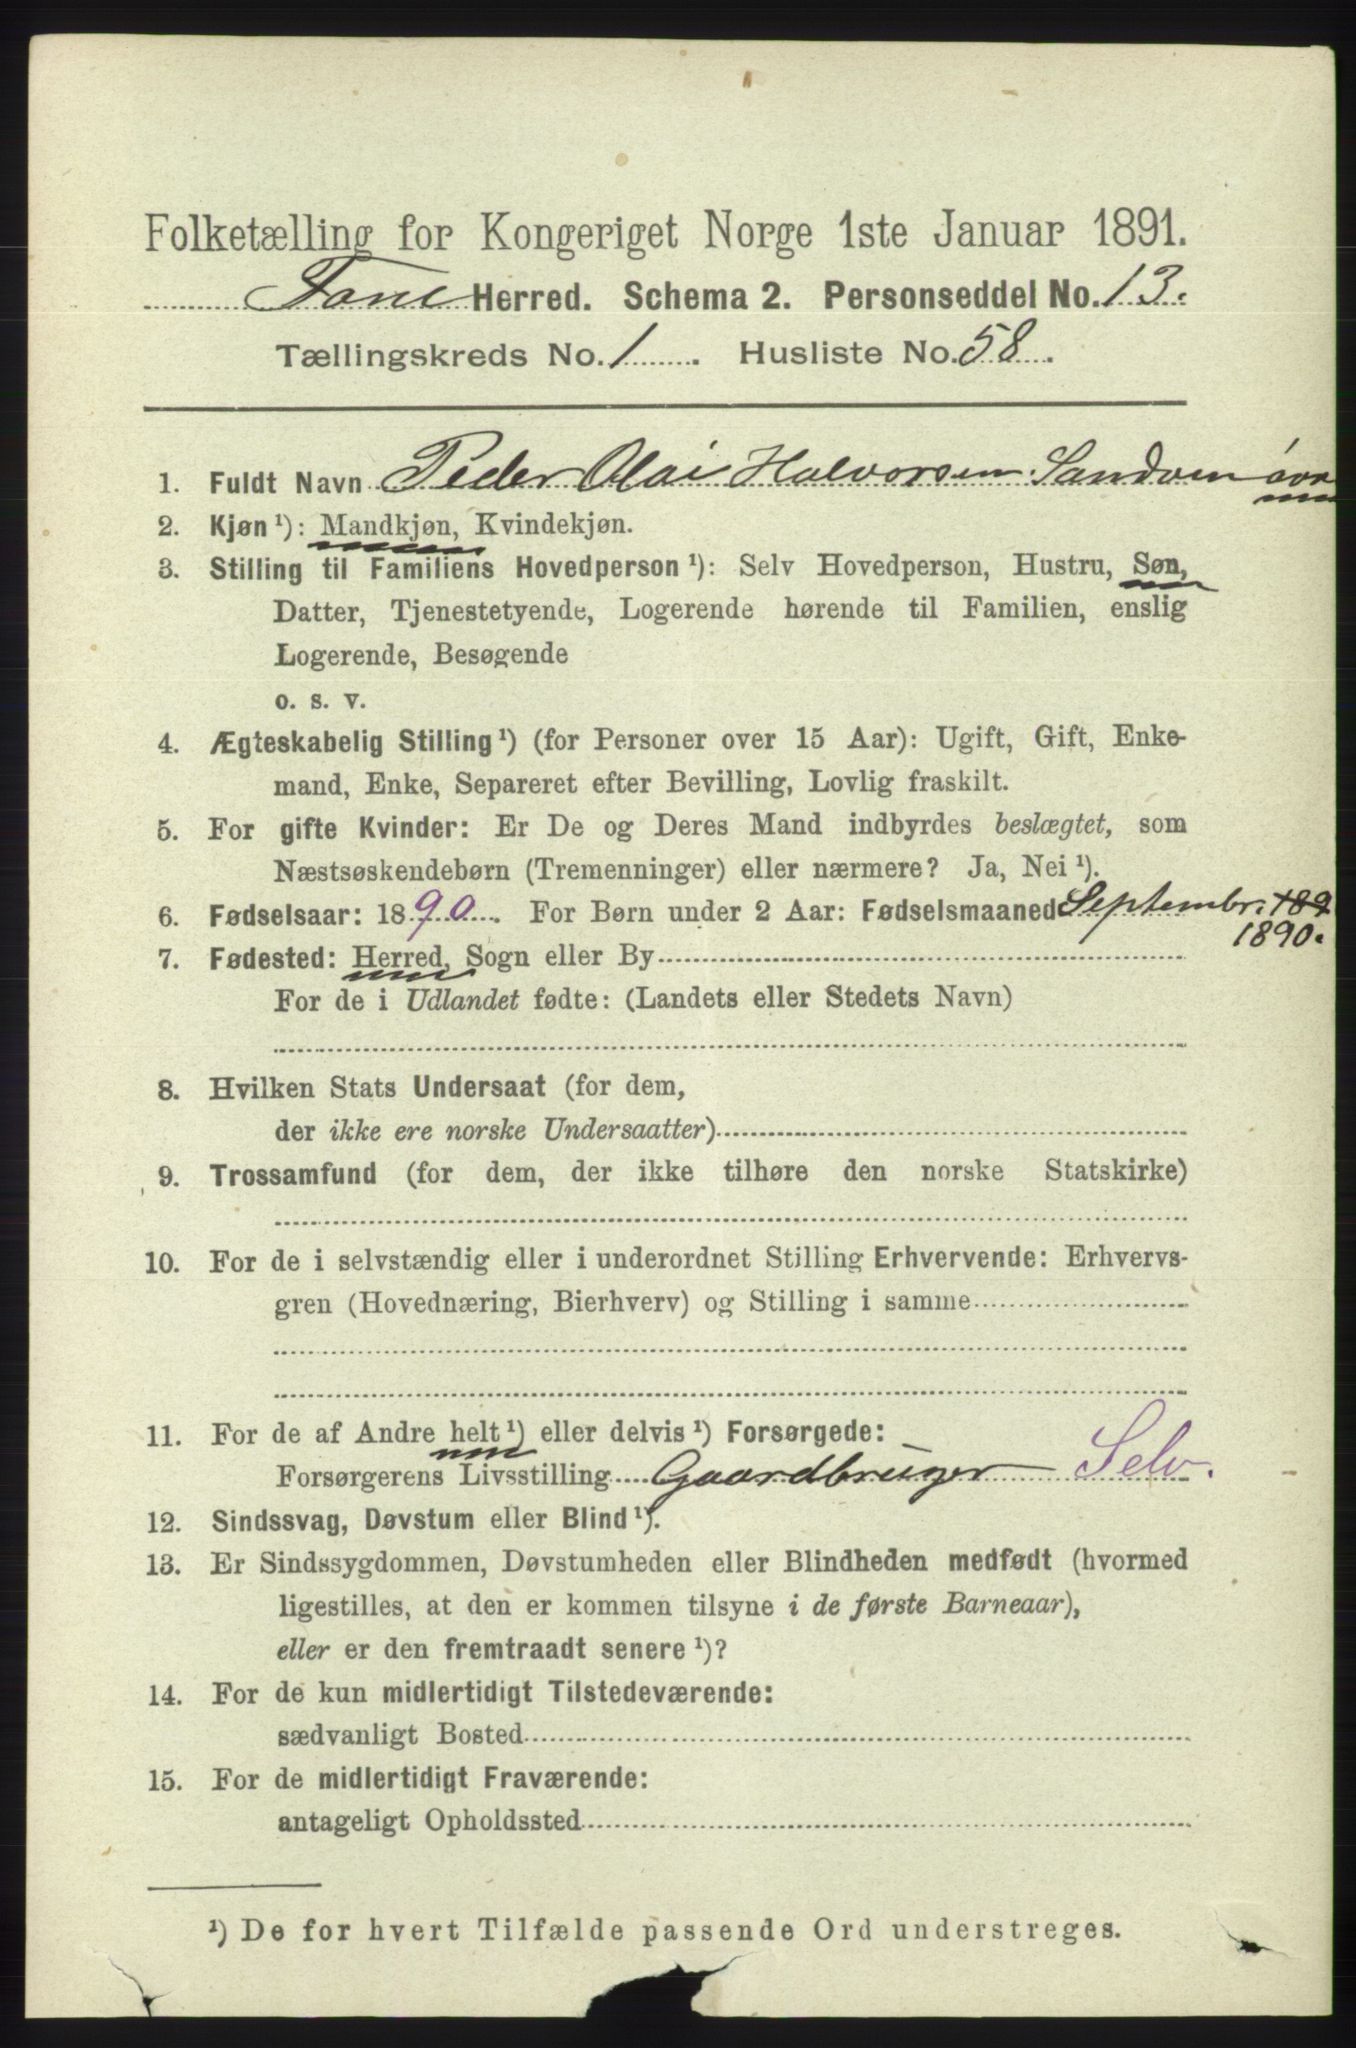 Folketælling for Kongeriget Norge 1ste Januar 1891.
Fane Herred. Schema 2. Personseddel No. 13.
Tællingskreds No. 1. Husliste No. 58.
1. Fuldt Navn Peder Olai Halvorsen Sandven
2. Kjøn ¹): Mandkjøn, Kvindekjøn.
3. Stilling til Familiens Hovedperson ¹): Selv Hovedperson, Hustru, Søn,
Datter, Tjenestetyende, Logerende hørende til Familien, enslig
Logerende, Besøgende
o. s. v.
4. Ægteskabelig Stilling ¹) (for Personer over 15 Aar): Ugift, Gift, Enke-
mand, Enke, Separeret efter Bevilling, Lovlig fraskilt.
5. For gifte Kvinder: Er De og Deres Mand indbyrdes beslægtet, som
Næstsøskendebørn (Tremenninger) eller nærmere? Ja, Nei ¹).
6. Fødselsaar: 1890. For Børn under 2 Aar: Fødselsmaaned Septembr. 189
1890.
7. Fødested: Herred, Sogn eller By
For de i Udlandet fødte: (Landets eller Stedets Navn)
8. Hvilken Stats Undersaat (for dem,
der ikke ere norske Undersaatter)
9. Trossamfund (for dem, der ikke tilhøre den norske Statskirke)
10. For de i selvstændig eller i underordnet Stilling Erhvervende: Erhvervs-
gren (Hovednæring, Bierhverv) og Stilling i samme
11. For de af Andre helt ¹) eller delvis ¹) Forsørgede:
Forsørgerens Livsstilling Gaardbruger Selv.
12. Sindssvag, Døvstum eller Blind ¹).
13. Er Sindssygdommen, Døvstumheden eller Blindheden medfødt (hvormed
ligestilles, at den er kommen tilsyne i de første Barneaar),
eller er den fremtraadt senere ¹)?
14. For de kun midlertidigt Tilstedeværende:
sædvanligt Bosted
15. For de midlertidigt Fraværende:
antageligt Opholdssted
¹) De for hvert Tilfælde passende Ord understreges.